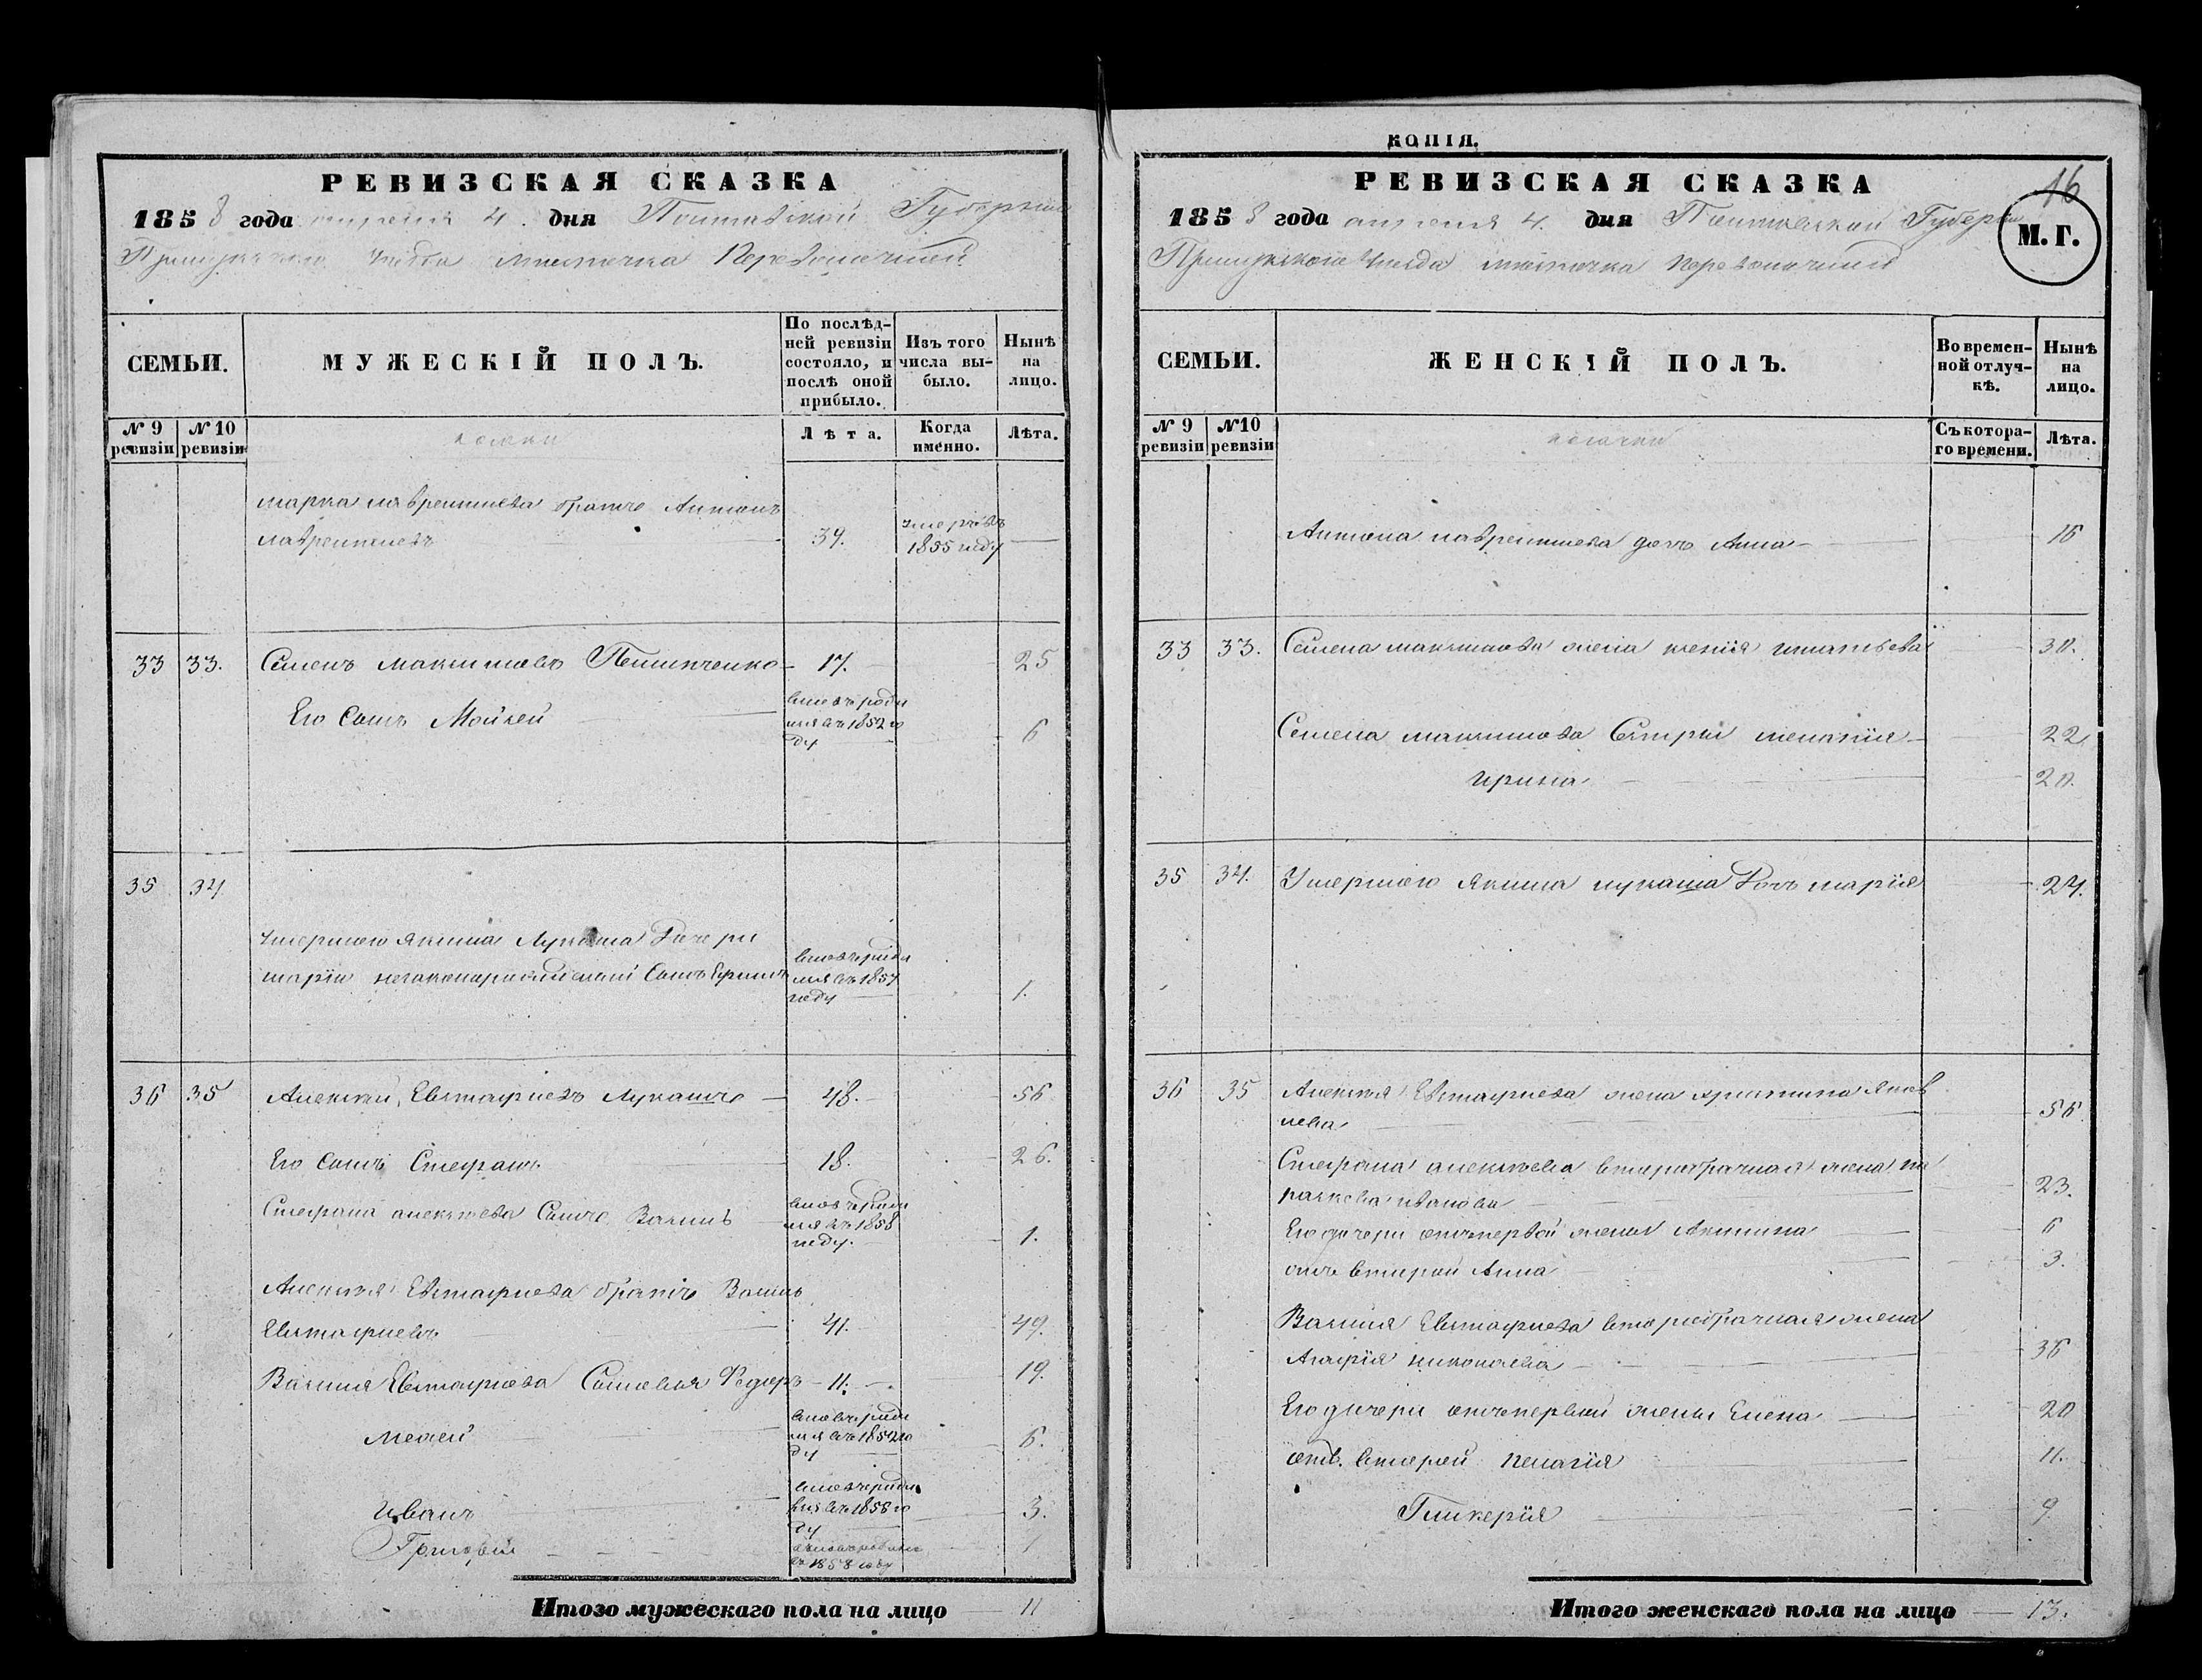 РЕВИЗСКАЯ СКАЗКА
1858 года апреля 4. дня Полтавской Губернии
Прилуцкаго Уезда местечка Переволочной
СЕМЬИ.
МУЖЕСКІЙ ПОЛЪ.
По послѣд-
ней ревизіи
состояло, и
послѣ оной
прибыло.
Изъ того
числа вы-
было.
Нынѣ
на
лицо.
№ 9
ревизіи
№ 10
ревизіи
козаки
Лѣта.
Когда
именно.
Лѣта.
марка лаврентиева братъ Антонъ
лаврентиевъ 39. умеръ въ
1855 году
33 33. Семенъ максимовъ 17. 25
Его Сынъ Мойсей вновь роди
лся въ 1852 го
ду 6
35 34
умершого якима Лукаша Дочери
маріи незаконорожденный Сынъ Ефимъ вновь роди
лся въ 1857
году 1.
36 35 Алексей Евстафиевъ Лукашъ 48. 56
Его Сынъ Стефанъ 18. 26.
Стефана алексеева Сынъ Василь вновь роди
лся въ 1858
году. 1.
Алексея Евстафиева братъ Василь
Евстафиевъ 41. 49.
Василя Евстафиева Сыновья Федоръ 11. 19.
Мойсей вновь роди
лся въ 1852 го
ду 6.
Иванъ вновь роди
лся въ 1858 го
ду 3.
Григорій вновь родился
въ 1858 году 1
Итого мужескаго пола на лицо 11
КОПІЯ.
РЕВИЗСКАЯ СКАЗКА
16
М. Г.
1858 года апреля 4. дня Полтавской Губернии
Прилуцкаго Уезда местечка Переволочной
СЕМЬИ.
ЖЕНСКІЙ ПОЛЪ.
Во времен-
ной отлуч-
кѣ.
Нынѣ
на
лицо.
№ 9
ревизіи
№ 10
ревизіи
козачки
Съ котора-
го времени.
Лѣта.
Антона лаврентиева дочь Анна 16
33 33. Семена максимова жена ксенія игнатьева 30.
Семена максимова Сестры меланія 22.
ирина 20.
35 34. Умершого якима лукаша Дочь марія 24.
36 35 Алексея Евстафиева жена христина яков
лева 56.
Стефана алексеева второбрачная жена па
раскева иванова 23.
Его дочери отъ первой жены Акилина 6
отъ второй Анна 3.
Василя Евстафиева второбрачная жена
Агафія николаева 36
Его дочери отъ первой жены Елена 20
отъ второй пелагія 11.
Гликерія 9
Итого женскаго пола на лицо 13.